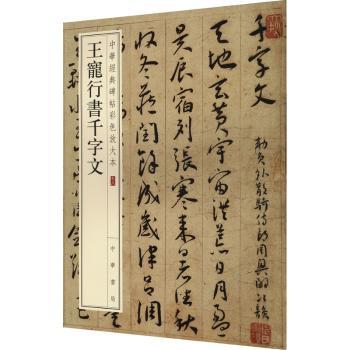 中華經典碑帖彩色放大本
王寵行書千字文
中華書局
千字文
勑員外散騎侍郎周興嗣次韻
天地玄黃宇宙洪荒日月盈
昃辰宿列張寒來暑往秋
收冬藏閏餘成歲律呂調